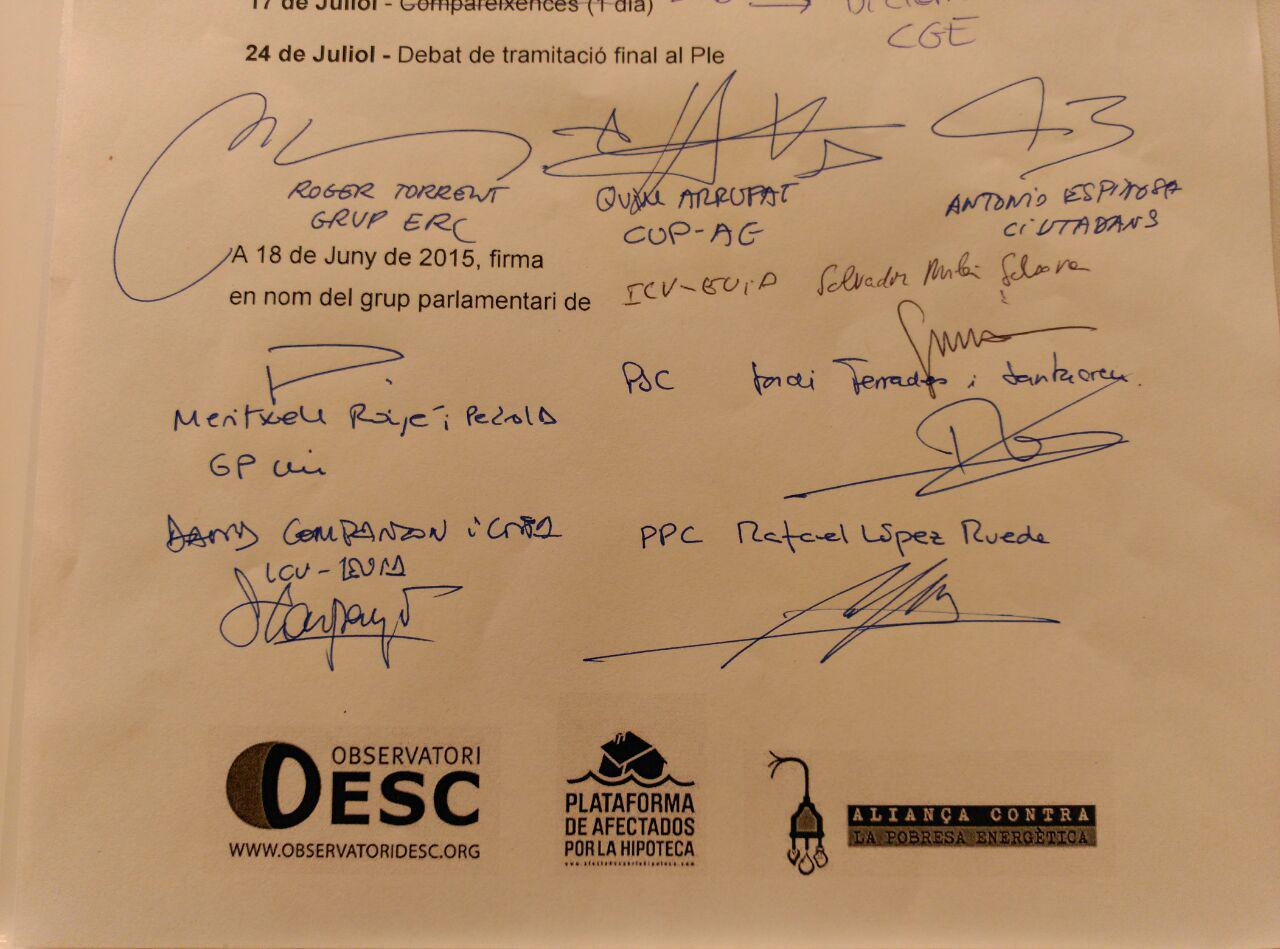 17 de Juliol - Compareixences (1 dia)
CGE
24 de Juliol - Debat de tramitació final al Ple
ROGER TORRENT
GRUP ERC
QUIM ARRUFAT
CUP-AE
ANTONIO ESPINOSA
CIUTADANS
A 18 de Juny de 2015, firma
en nom del grup parlamentari de
ICV-EUiA Salvador Milà i Solsona
PSC Jordi Terrades i Santacreu
Meritxell Roigé i Pedrola
GP CiU
COMPANZON i
ICV-EUIA
PPC Rafael López Rueda
OBSERVATORI
DESC
WWW.OBSERVATORIDESC.ORG
PLATAFORMA
DE AFECTADOS
POR LA HIPOTECA
www.afectadosporlahipoteca.com
ALIANÇA CONTRA
LA POBRESA ENERGÈTICA